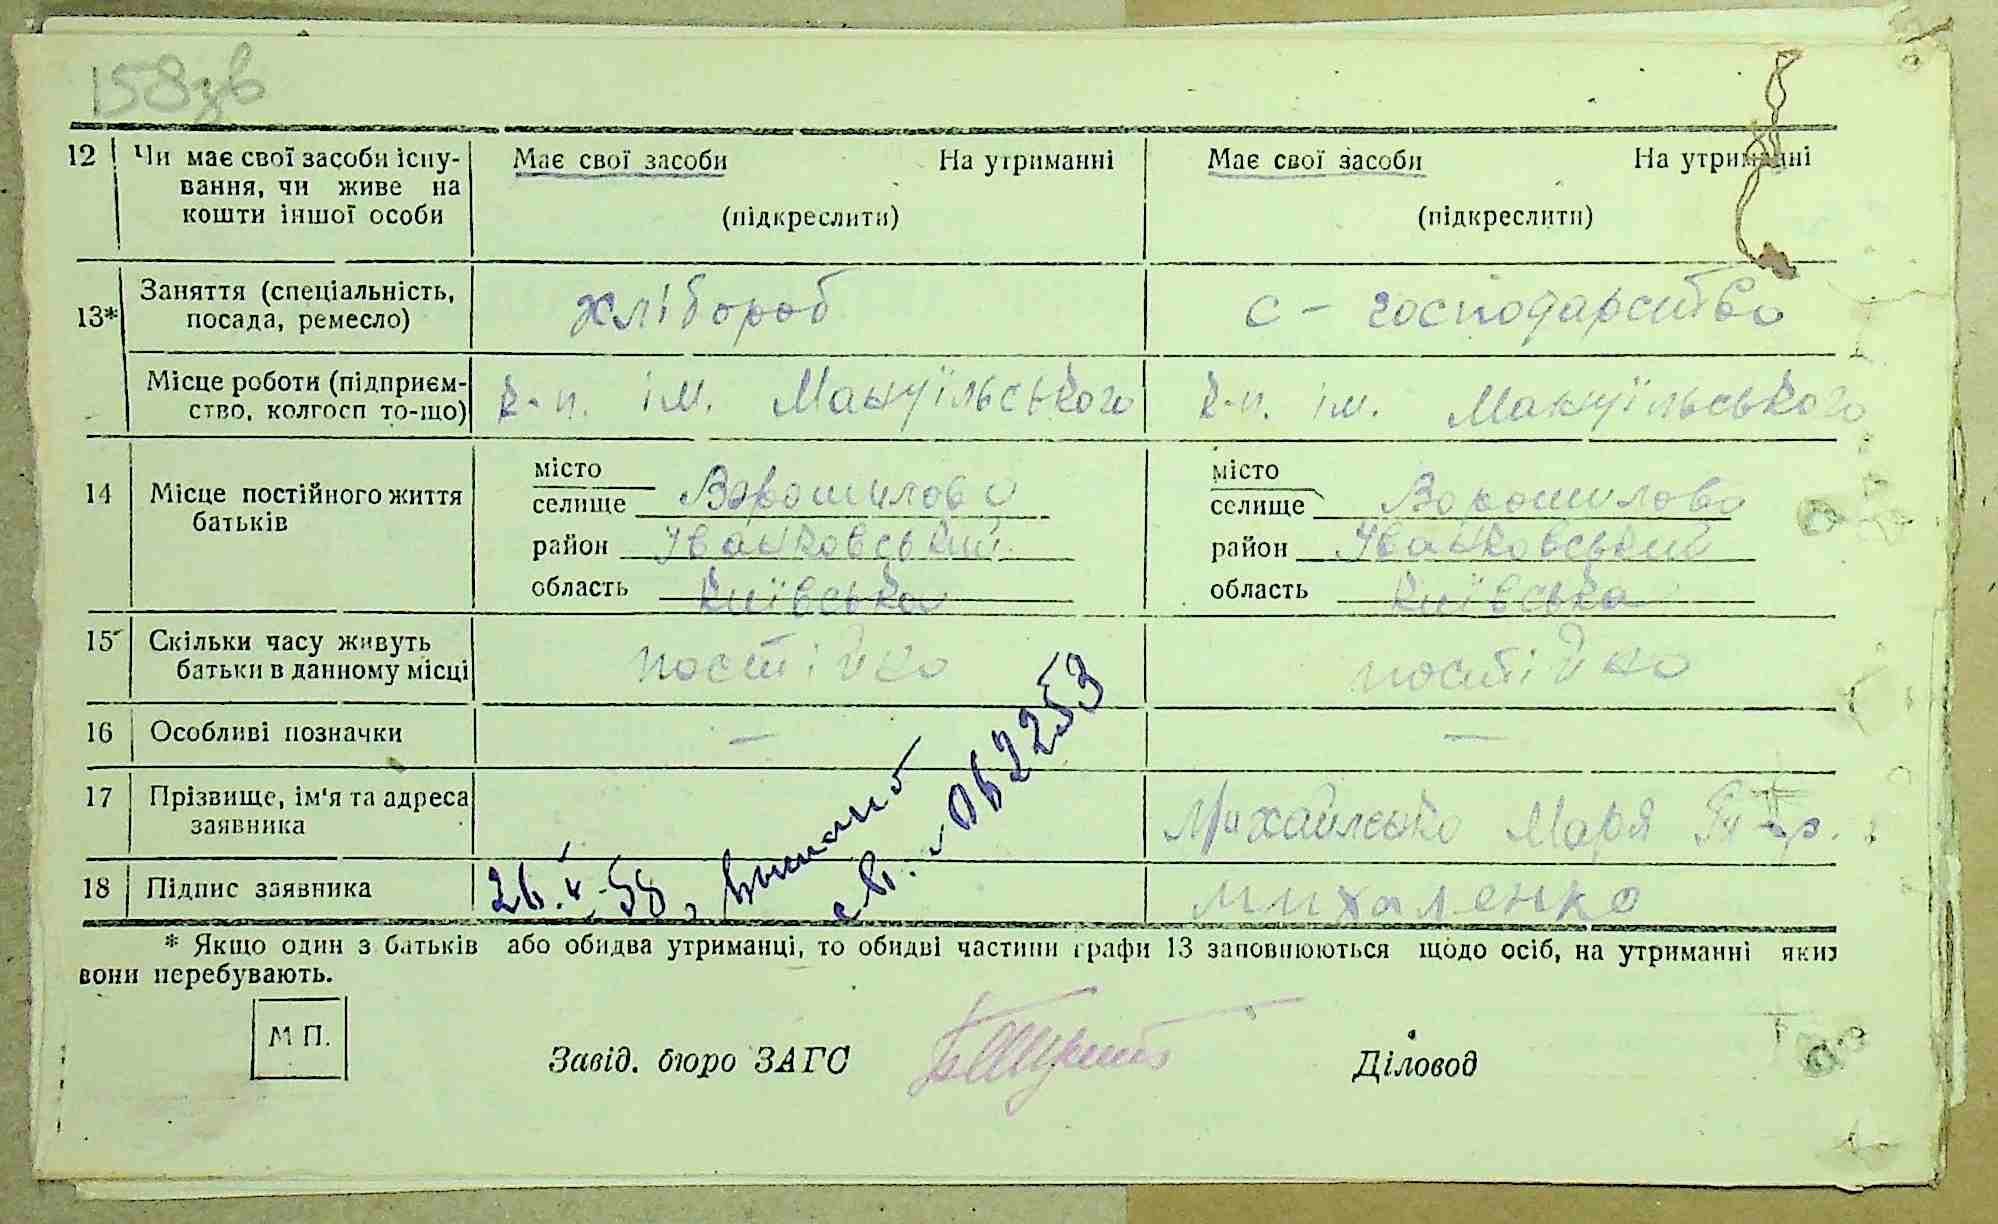 158зв
12 Чи має свої засоби існу- Має свої засоби На утриманні Має свої засоби На утриманні
вання, чи живе на
кошти іншої особи (підкреслити) (підкреслити)
13* Заняття (спеціальність, хлібороб с-господарство
посада, ремесло)
Місце роботи (підприєм- к-п. ім. Мануїльського к-п. ім. Мануїльського
ство, колгосп то-що)
місто місто
14 Місце постійного життя селище Ворошилово селище Ворошилово
батьків
район Іванковський район Іванковський
область Київська область Київська
15 Скільки часу живуть постійно постійно
батьки в данному місці
16 Особливі позначки — —
17 Прізвище, ім'я та адреса Михайленко Марія
заявника
18 Підпис заявника михаленко
26.V-58, выдано
св. 062253
* Якщо один з батьків або обидва утриманці, то обидві частини графи 13 заповнюються щодо осіб, на утриманні яких
вони перебувають.
М П.
Завід. бюро ЗАГС Діловод